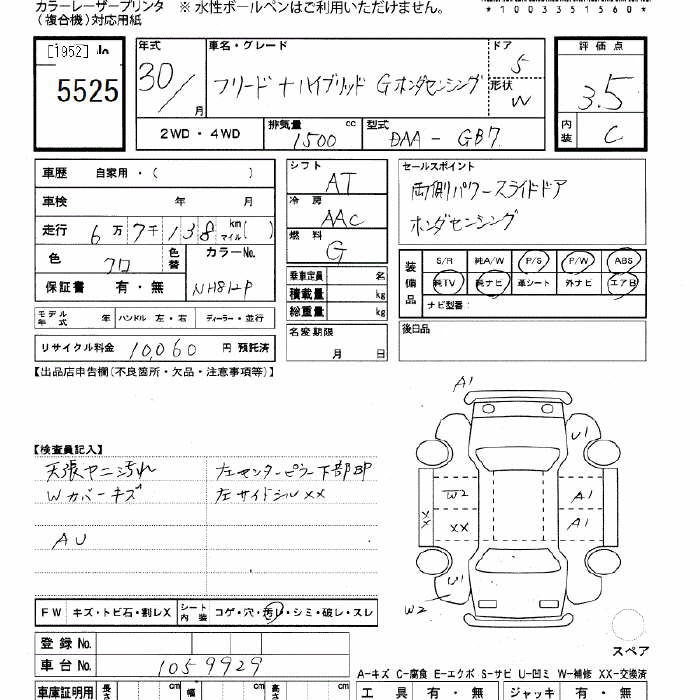 カラーレーザープリンタ ※ 水性ボールペンはご利用いただけません。
(複合機)対応用紙
*1003351560*
[1952]
5525
年式 30/ 月
車名・グレード フリード+ハイブリッド G ホンダセンシング
ドア 5
形状 W
評価点 3.5
内装 C
2WD・4WD
排気量 1500 cc
型式 DAA-GB7
車歴 自家用・( )
車検 年 月
走行 6万7千138 km マイル( )
色 クロ 色替 カラーNo. NH812P
保証書 有・無
モデル年式 年 ハンドル 左・右 ディーラー・並行
リサイクル料金 10,060 円 預託済
シフト AT
冷房 AAC
燃料 G
乗車定員 名
積載量 kg
総重量 kg
名変期限 月 日
セールスポイント
両側パワースライドドア
ホンダセンシング
装備品
S/R 純A/W P/S P/W ABS
純TV 純ナビ 革シート 外ナビ エアB
ナビ型番:
後日品
【出品店申告欄(不良箇所・欠品・注意事項等)】
【検査員記入】
天張ヤニ汚れ 左センターピラー下部BP
Wカバーキズ 左サイドシルXX
AU
A1
U1
W2 A1
XX XX A1
U1
W2
スペア
FW キズ・トビ石・割レX シート内装 コゲ・穴・汚レ・シミ・破レ・スレ
登録No.
車台No. 1059929
A-キズ C-腐食 E-エクボ S-サビ U-凹ミ W-補修 XX-交換済
車庫証明用 長さ cm 幅 cm 高さ cm
工具 有・無 ジャッキ 有・無